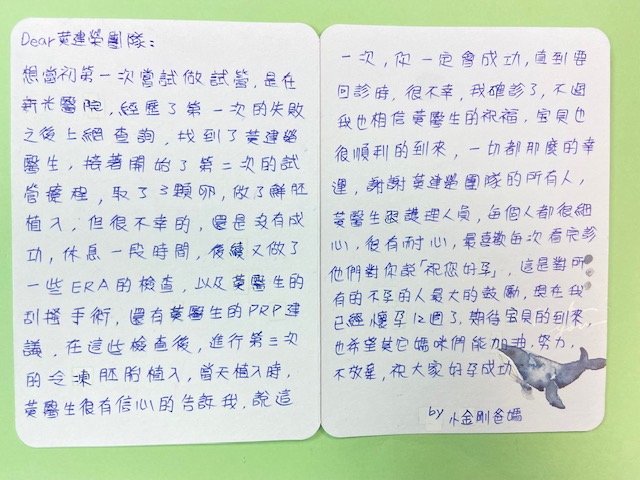 Dear黃建榮團隊：
想當初第一次嘗試做試管，是在
新光醫院，經歷了第一次的失敗
之後上網查詢，找到了黃建榮
醫生，接著開始了第二次的試
管療程，取了33顆卵，做了鮮胚
植入，但很不幸的，還是沒有成
功，休息一段時間，後續又做了
一些ERA的檢查，以及黃醫生的
刮搔手術，還有黃醫生的PRP建
議，在這些檢查後，進行第三次
的冷凍胚胎植入，當天植入時，
黃醫生很有信心的告訴我，說這
一次，你一定會成功，直到要
回診時，很不幸，我確診了，不過
我也相信黃醫生的祝福，宝貝也
很順利的到來，一切都那麼的幸
運，謝謝黃建榮團隊的所有人，
黃醫生跟護理人員，每個人都很細
心，很有耐心，最喜歡每次看完診
他們對你說「祝您好孕」，這是對所
有的不孕的人最大的鼓勵，現在我
已經懷孕12週了，期待宝貝的到來，
也希望其它媽咪們能加油，努力，
不放棄，祝大家好孕成功
by 小金剛爸媽